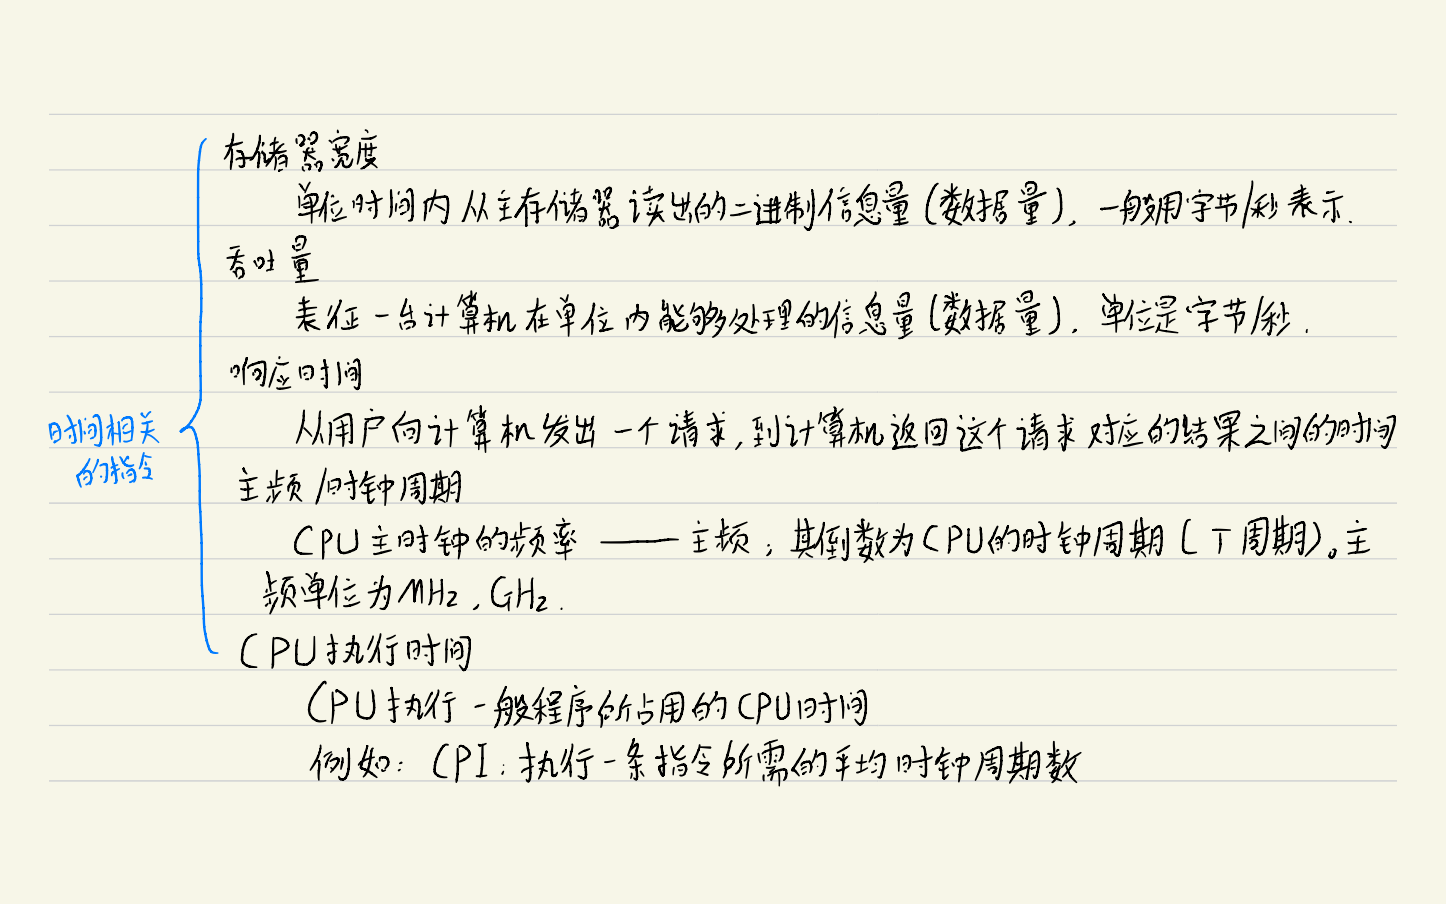 存储器宽度
单位时间内从主存储器读出的二进制信息量(数据量), 一般用字节/秒表示.
吞吐量
表征一台计算机在单位内能够处理的信息量(数据量). 单位是字节/秒.
响应时间
从用户向计算机发出一个请求,到计算机返回这个请求对应的结果之间的时间
时间相关
的指令
主频/时钟周期
CPU主时钟的频率 —— 主频; 其倒数为CPU的时钟周期(T周期)。主
频单位为MHz, GHz.
CPU执行时间
CPU执行一般程序所占用的CPU时间
例如: CPI: 执行一条指令所需的平均时钟周期数